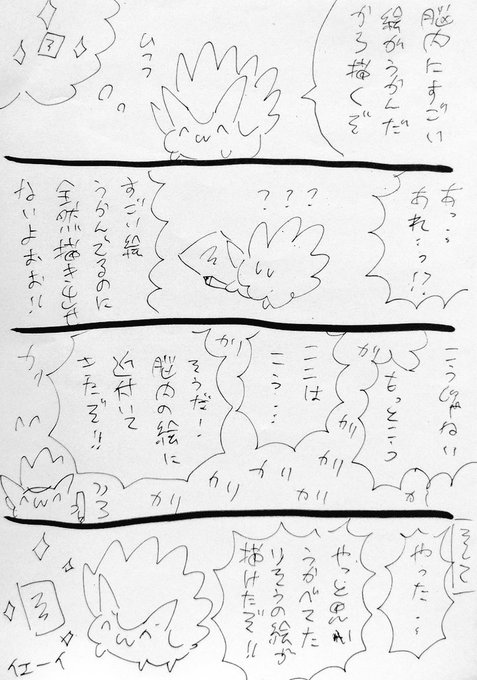 脳内にすごい
絵がうかんだ
から描くぞ
ひっつ
え
あっ…
あれ…っ!?
???
え
すごい絵
うかんでるのに
全然描き出せ
ないよぉお!!
こうじゃねい
もっとこう
ガリ
ここは
こう…
ガリ
そうだ!
脳内の絵に
近付いて
きたぞ!!
ガリ
ガリ
ガリ
ガリ
ガリ
ガリ
ガリ
そして
やった…
やっと思い
うかべてた
りそうの絵が
描けたぞ!!
え
イエーイ